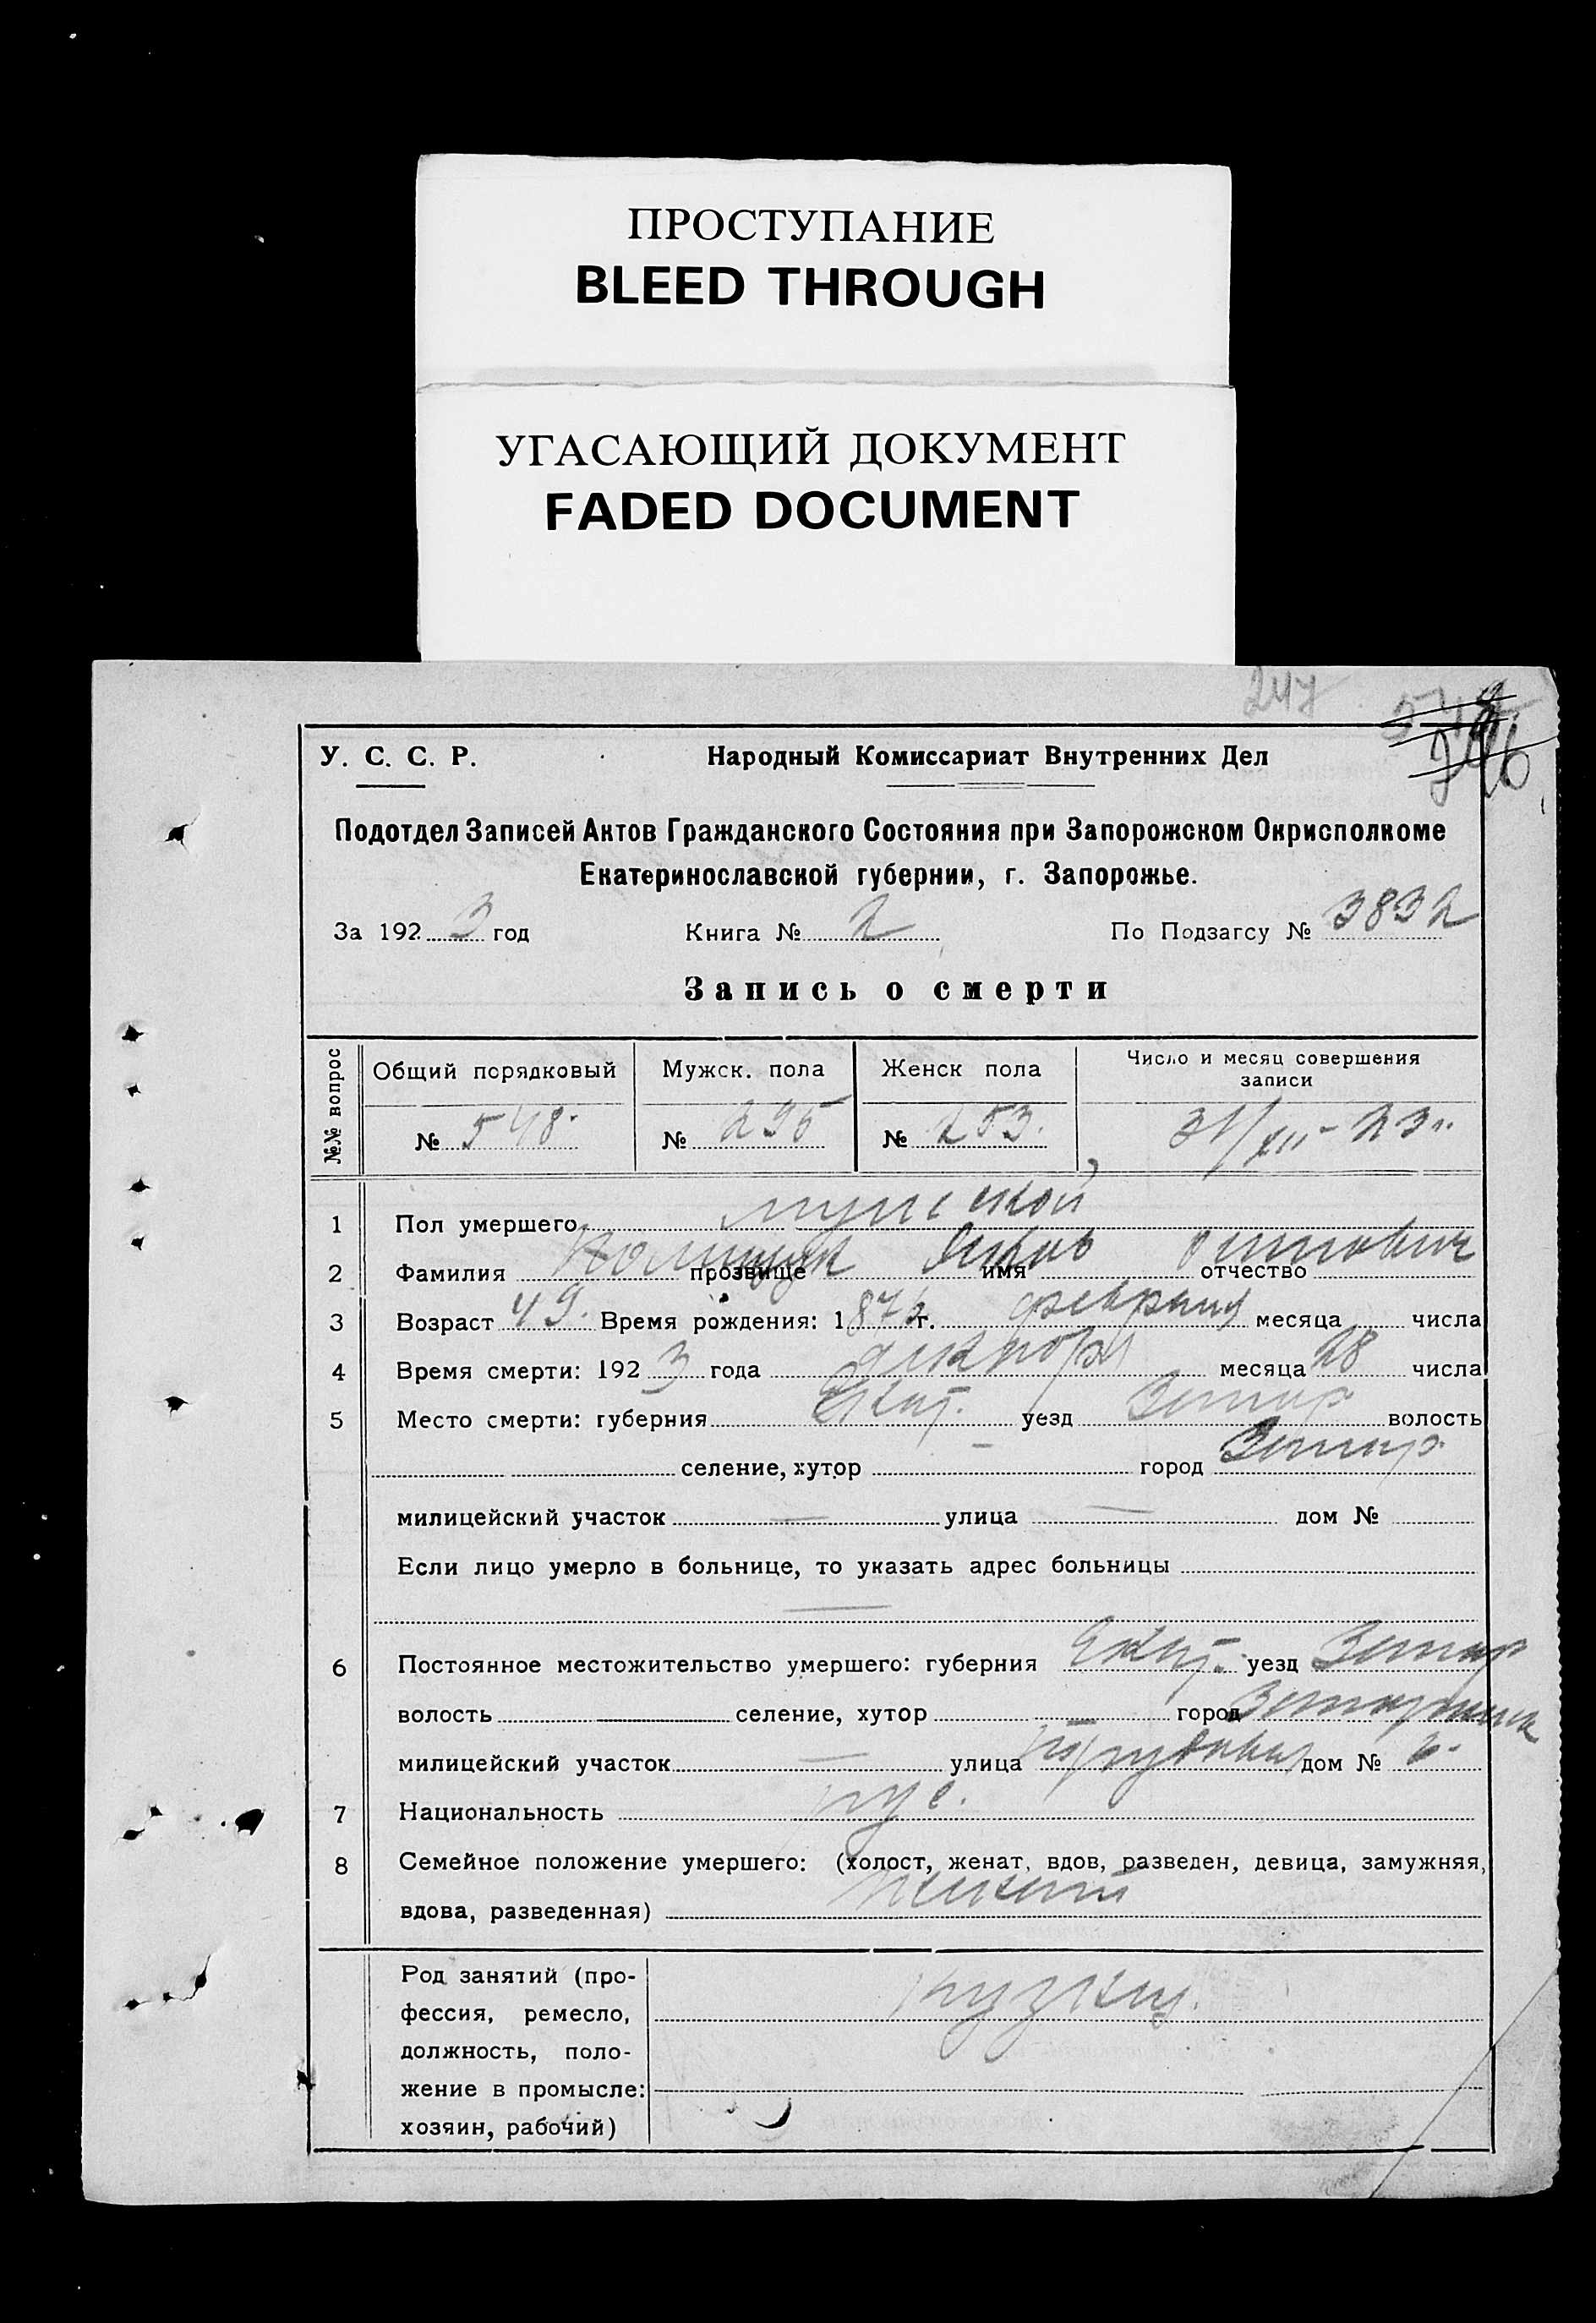 ПРОСТУПАНИЕ
BLEED THROUGH
УГАСАЮЩИЙ ДОКУМЕНТ
FADED DOCUMENT
247
У. С. С. Р. Народный Комиссариат Внутренних Дел
Подотдел Записей Актов Гражданского Состояния при Запорожском Окрисполкоме
Екатеринославской губернии, г. Запорожье.
За 1923 год Книга № 2 По Подзагсу № 3832
Запись о смерти
№№ вопрос
Общий порядковый Мужск. пола Женск пола Число и месяц совершения
записи
№ 548. № 295 № 253. 31/XII-23 г.
1 Пол умершего мужской
2 Фамилия прозвище имя отчество
3 Возраст 49. Время рождения: 187 г. февраля месяца числа
4 Время смерти: 1923 года декабря месяца 28 числа
5 Место смерти: губерния Екат. уезд Запор волость
селение, хутор — город Запор.
милицейский участок — улица — дом №
Если лицо умерло в больнице, то указать адрес больницы
—
6 Постоянное местожительство умершего: губерния Екат. уезд Запор
волость — селение, хутор город
милицейский участок — улица дом № 6.
7 Национальность рус.
8 Семейное положение умершего: (холост, женат, вдов, разведен, девица, замужняя,
вдова, разведенная) женат
Род занятий (про-
фессия, ремесло,
должность, поло-
жение в промысле:
хозяин, рабочий)
кузнец.